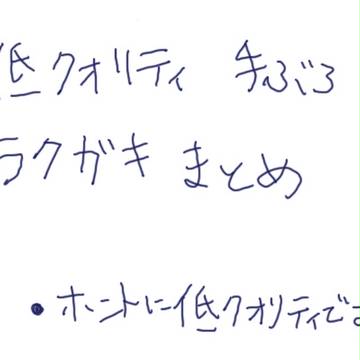 低クオリティ 手ぶろ
ラクガキ まとめ
・ホントに低クオリティで